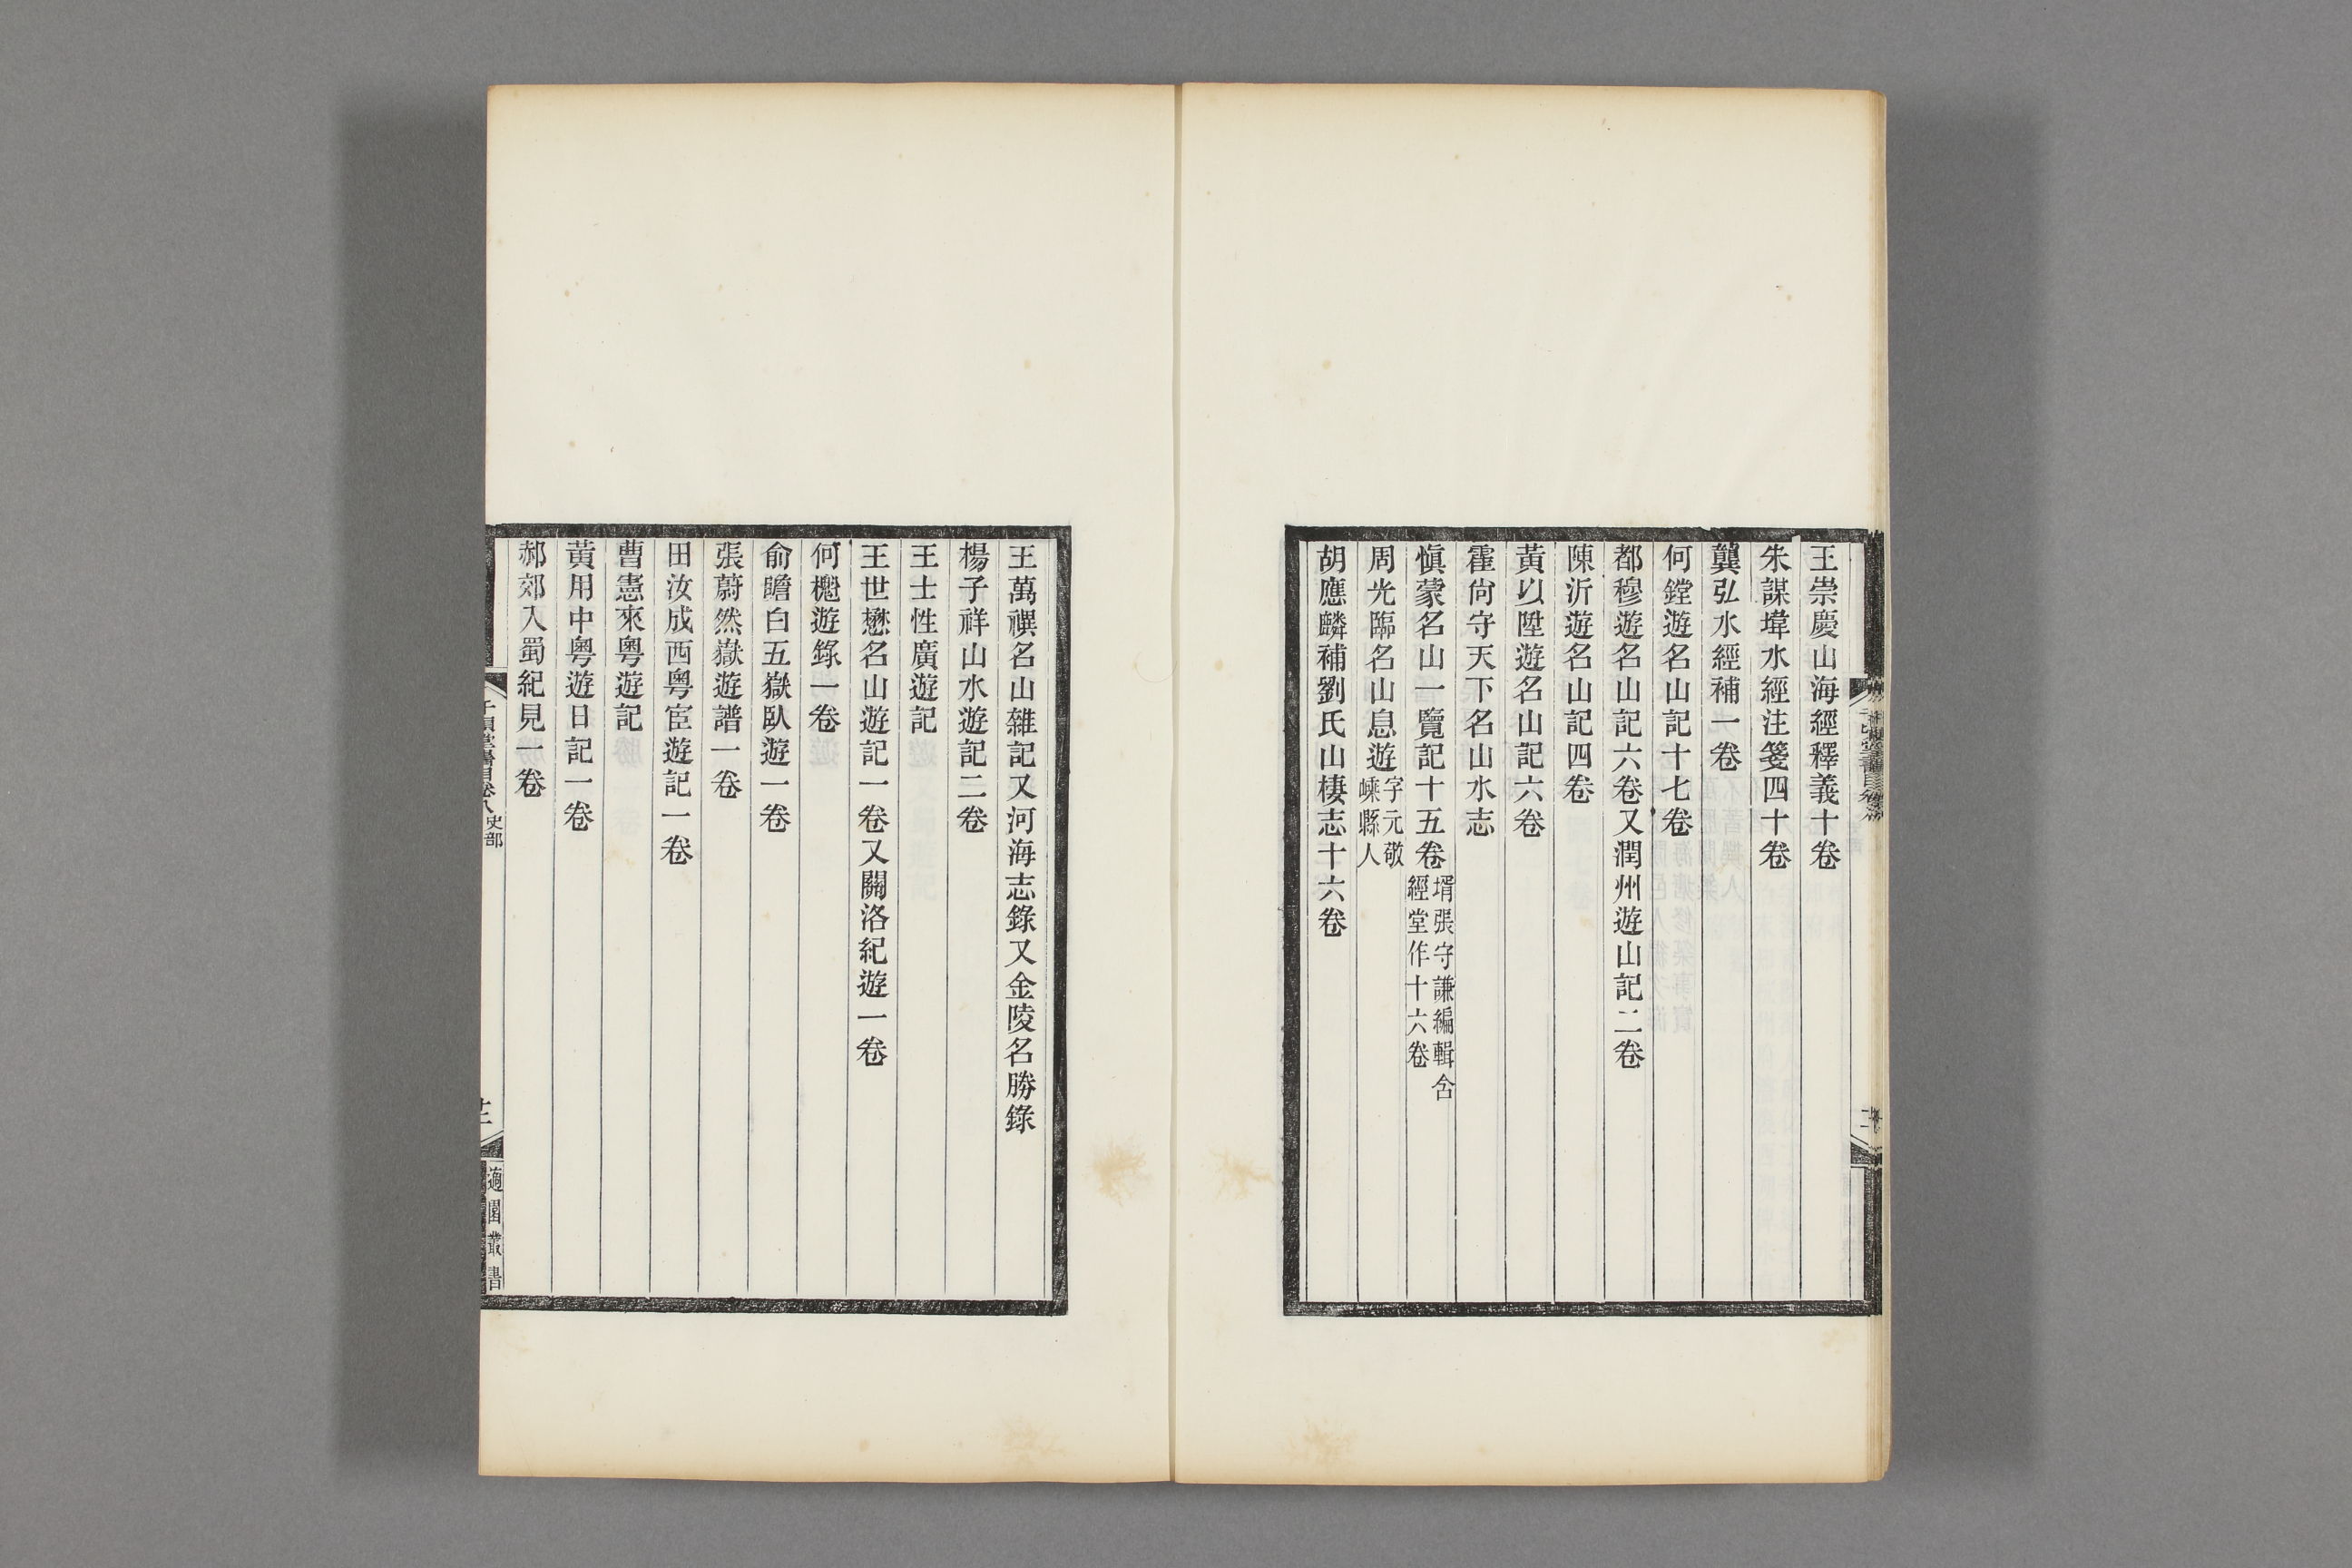 王崇慶山海經釋義十卷
朱謀㙔水經注箋四十卷
龔弘水經補一卷
何鏜遊名山記十七卷
都穆遊名山記六卷又潤州遊山記二卷
陳沂遊名山記四卷
黃以陞遊名山記六卷
霍尙守天下名山水志
愼蒙名山一覽記十五卷壻張守謙編輯含
經堂作十六卷
周光臨名山息遊字元敬
嵊縣人
胡應麟補劉氏山棲志十六卷
王萬禩名山雜記又河海志錄又金陵名勝錄
楊子祥山水遊記二卷
王士性廣遊記
王世懋名山遊記一卷又關洛紀遊一卷
何櫆遊錄一卷
俞瞻白五嶽臥遊一卷
張蔚然嶽遊譜一卷
田汝成西粵宦遊記一卷
曹憲來粵遊記
黃用中粵遊日記一卷
郝郊入蜀紀見一卷
千頃堂書目卷八史部
適園叢書